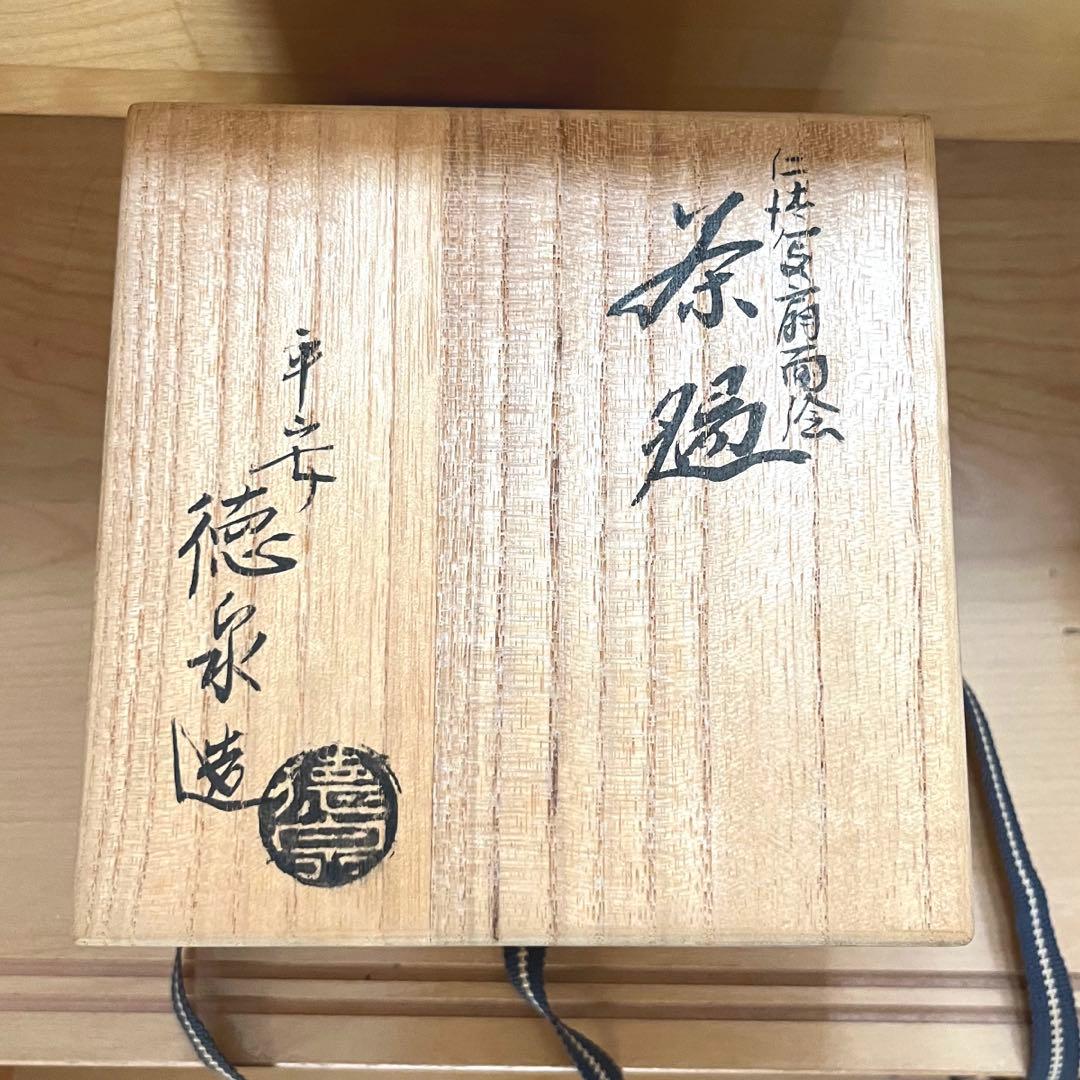 仁清写扇面絵
茶盌
平安
徳泉造
徳泉